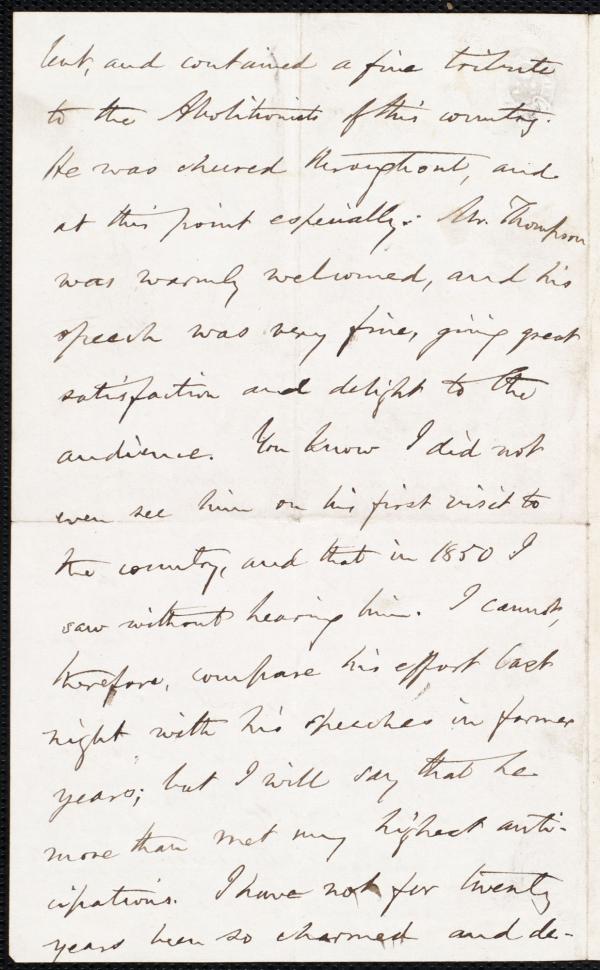 lent, and contained a fine tribute
to the Abolitionists of this country.
He was cheered throughout, and
at this point especially. Mr. Thompson
was warmly welcomed, and his
speech was very fine, giving great
satisfaction and delight to the
audience. You know I did not
even see him on his first visit to
the country, and that in 1850 I
saw without hearing him. I cannot,
therefore, compare his effort last
night with his speeches in former
years; but I will say that he
more than met my highest anti-
cipations. I have not for twenty
years been so charmed and de-